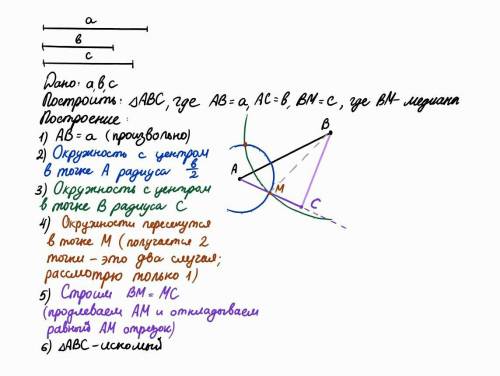 a
в
c
Дано: a,в,c
Построить: △ABC, где AB=a, AC=в, BM=c, где BM-медиана
Построение:
1) AB=a (произвольно)
2) Окружность с центром
в точке A радиуса в/2
3) Окружность с центром
в точке B радиуса C
4) Окружности пересекутся
в точке M (получается 2
точки - это два случая;
рассмотрю только 1)
5) Строим BM=MC
(продлеваем AM и откладываем
равный AM отрезок)
6) △ABC-искомый
A
B
M
C